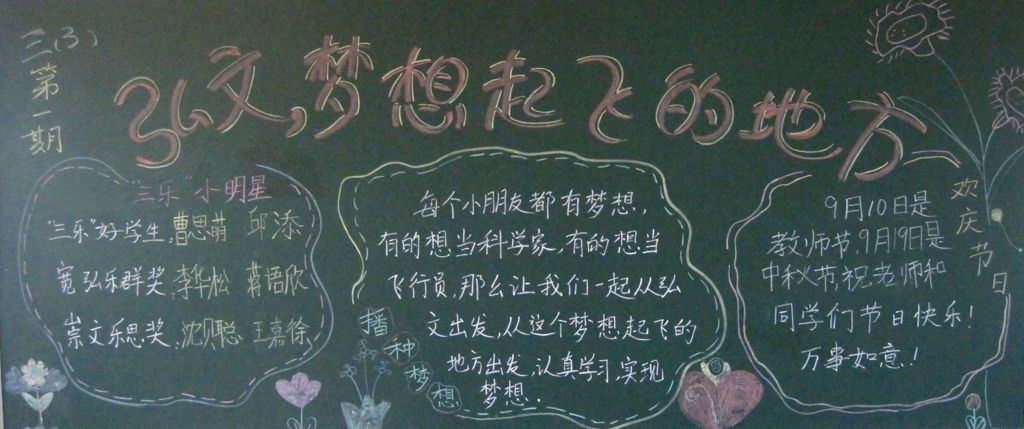 三(3)第一期
弘文,梦想起飞的地方
"三乐"小明星
"三乐"好学生 曹思萌 邱添
宽弘乐群奖 李华松 蒋语欣
崇文乐思奖 沈贝聪 王嘉徐
每个小朋友都有梦想,
有的想当科学家,有的想当
飞行员,那么让我们一起从弘
文出发,从这个梦想起飞的
地方出发,认真学习,实现
梦想.
播种梦想
9月10日是
教师节,9月19日是
中秋节,祝老师和
同学们节日快乐!
万事如意!
欢庆节日